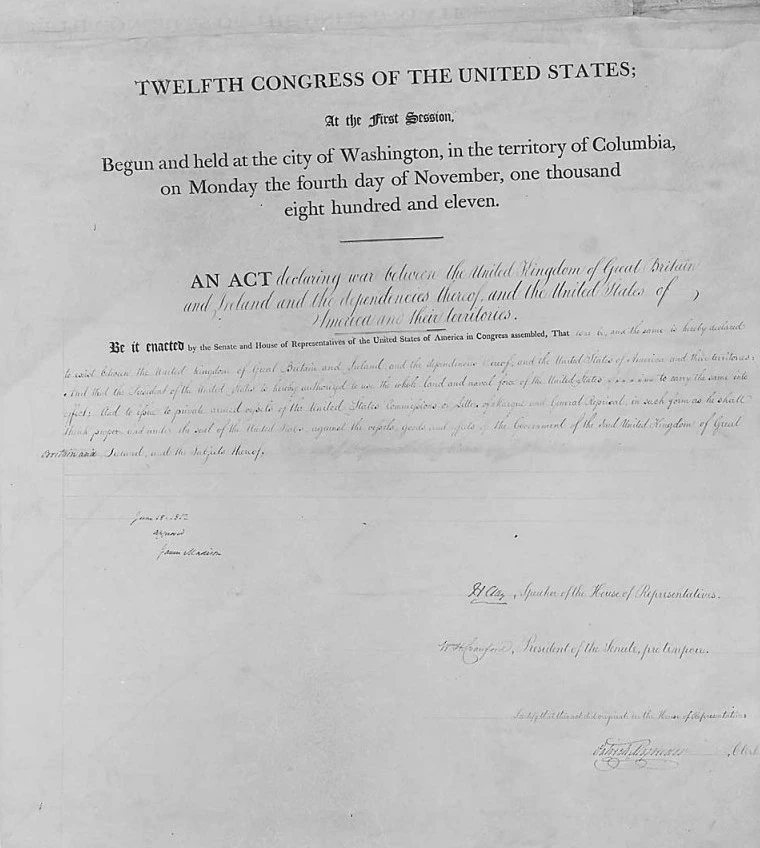 TWELFTH CONGRESS OF THE UNITED STATES;
At the First Session,
Begun and held at the city of Washington, in the territory of Columbia,
on Monday the fourth day of November, one thousand
eight hundred and eleven.
AN ACT declaring war between the United Kingdom of Great Britain
and Ireland and the dependencies thereof, and the United States of
America and their territories.
Be it enacted by the Senate and House of Representatives of the United States of America in Congress assembled, That war be, and the same is hereby declared
to exist between the United Kingdom of Great Britain and Ireland, and the dependencies thereof, and the United States of America and their territories:
And that the President of the United States is hereby authorized to use the whole land and naval force of the United States to carry the same into
effect: And to issue to private armed vessels of the United States Commissions or Letters of Marque and General Reprisal, in such form as he shall
think proper, and under the seal of the United States, against the vessels, goods and effects of the Government of the Said United Kingdom of Great
Britain and Ireland, and the Subjects thereof.
June 18 1812
Approved
James Madison
H Clay, Speaker of the House of Representatives.
Wm H Crawford, President of the Senate, pro tempore.
I certify that this act did originate in the House of Representatives
Clerk